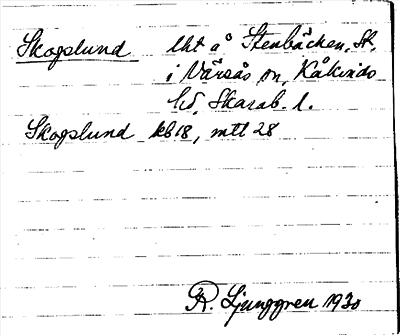 Skogslund lht å Stenbäcken, St,
i Värsås sn, Kåkinds
hd, Skarab. l.
Skogslund kb18, mtl 28
R. Ljunggren 1930